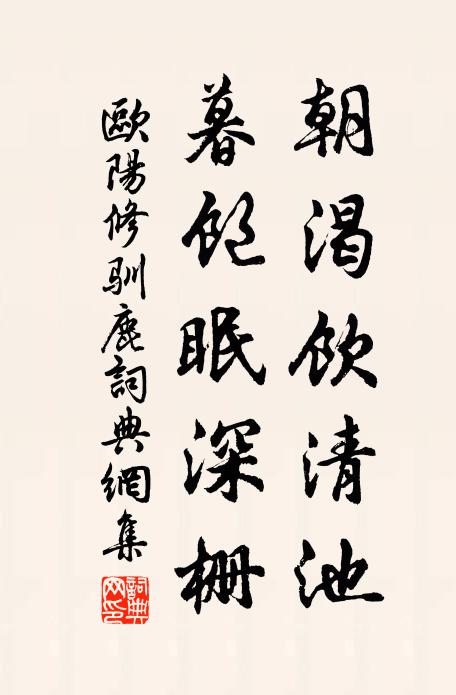 朝渴飲清池
暮飽眠深柵
歐陽修馴鹿詞典網集
詞典
网印